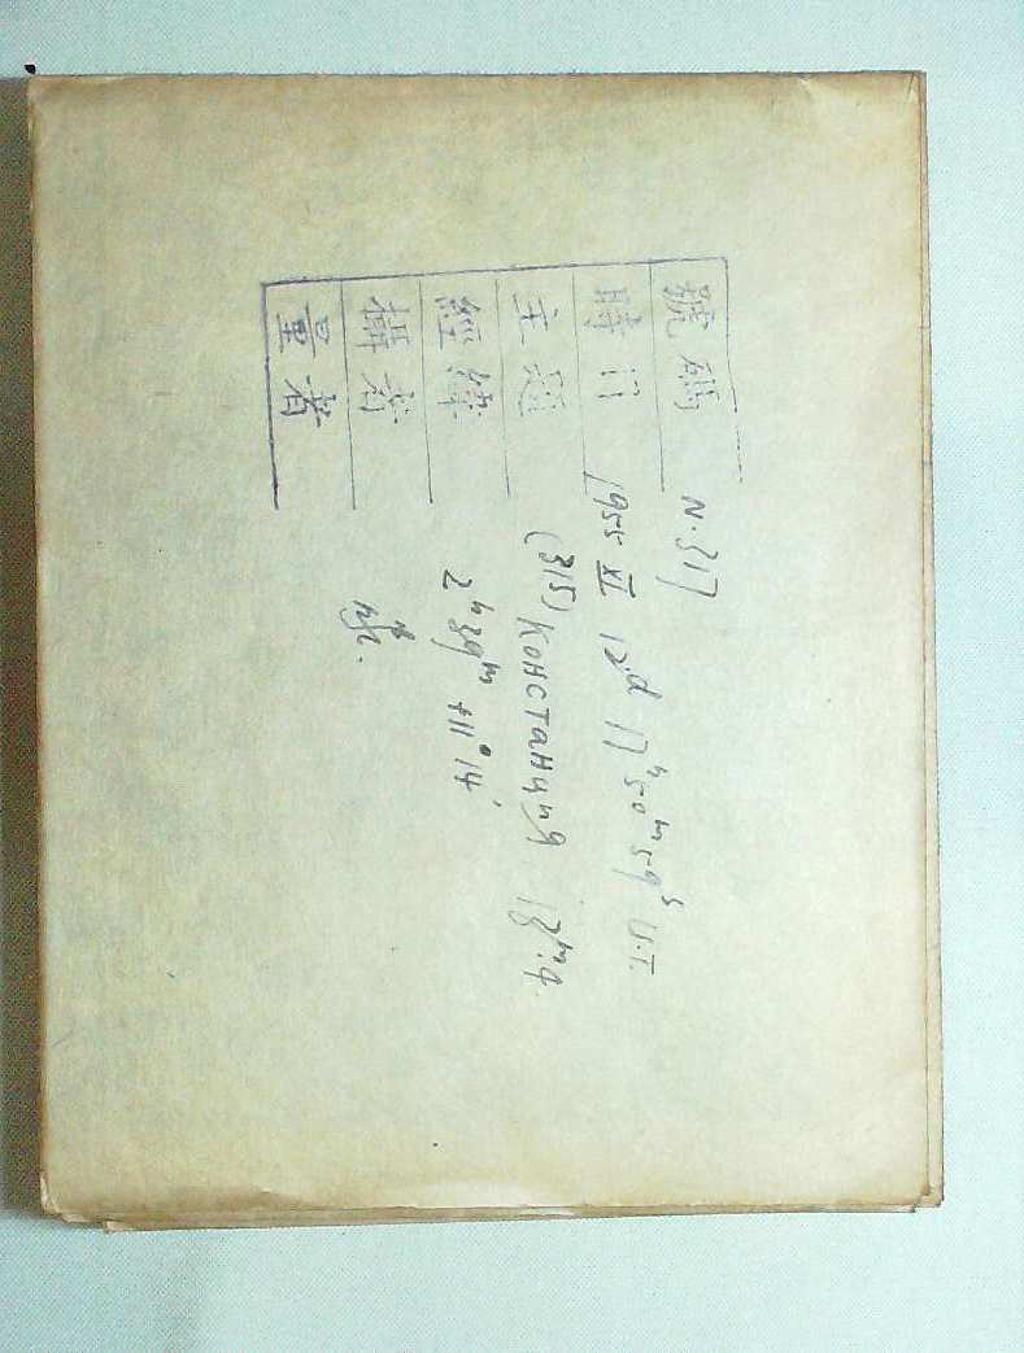 號碼 N.317
時日 1955 XI 12d 17ʰ50ᵐ59ˢ U.T.
主題 (315) Констанция 13ᵐ.9
經緯 2ʰ39ᵐ +11°14'
攝者
量者